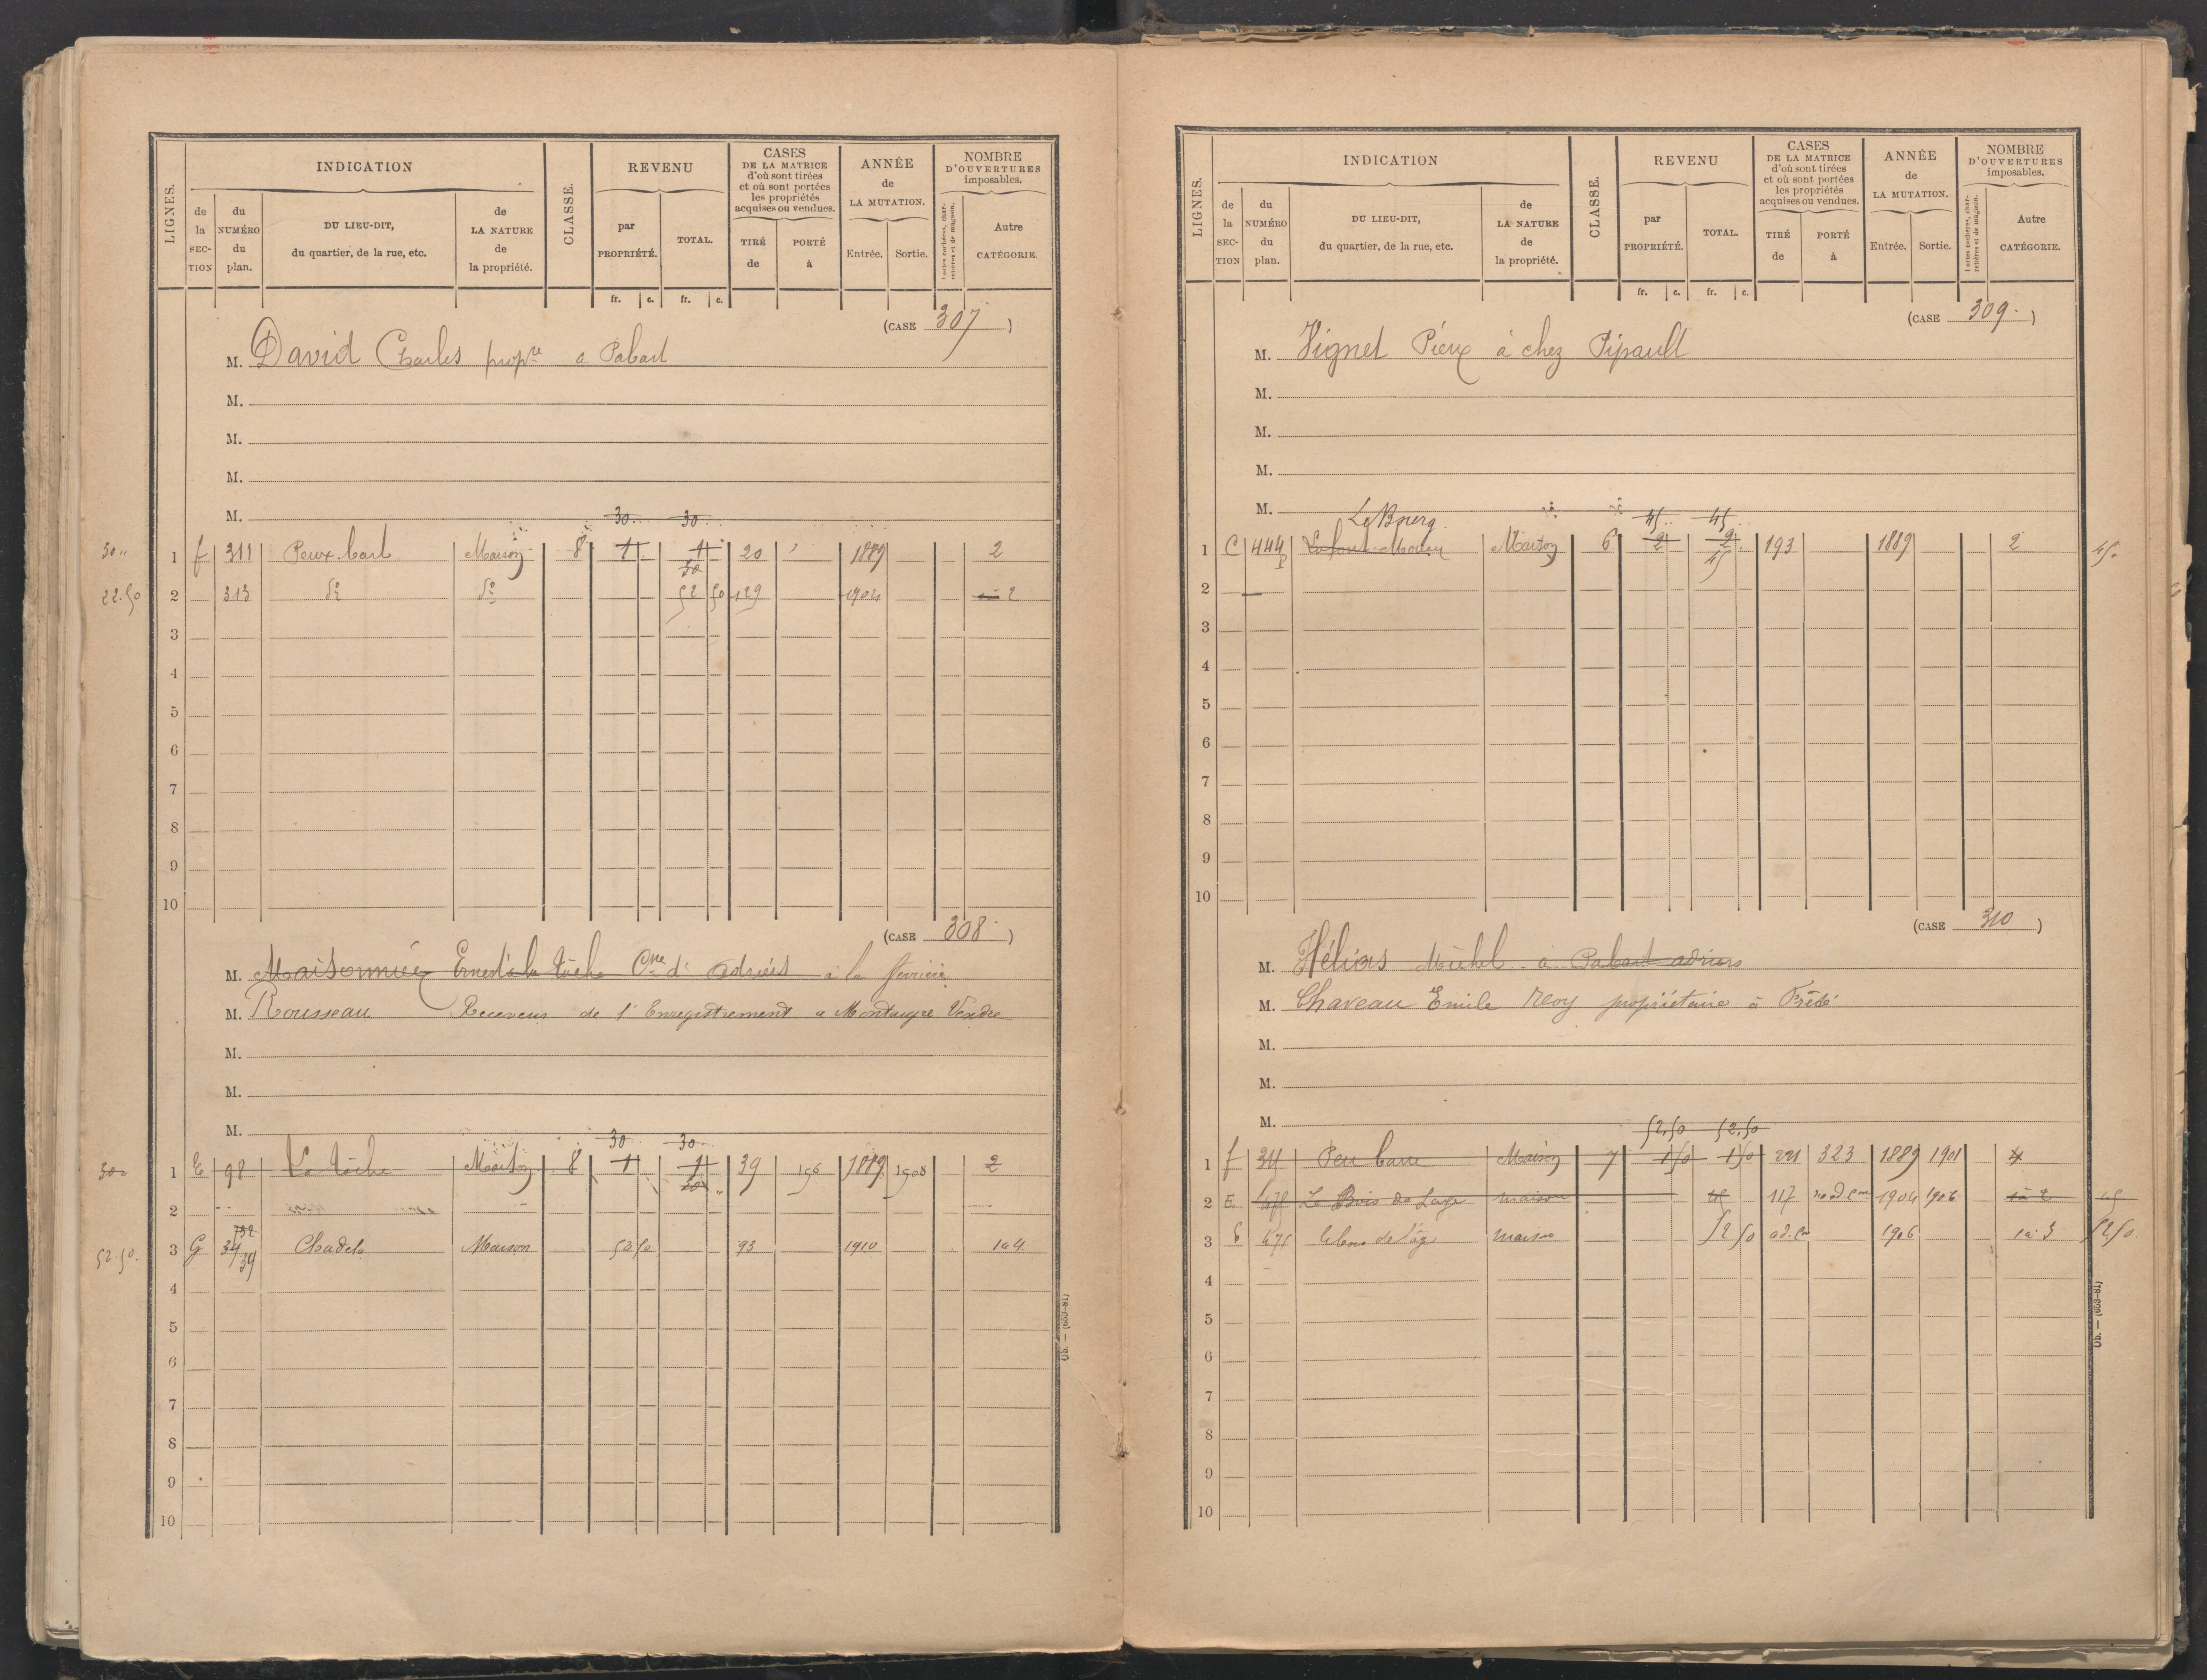 LIGNES.
INDICATION
de la SEC-TION
du NUMÉRO du plan.
DU LIEU-DIT, du quartier, de la rue, etc.
de LA NATURE de la propriété.
CLASSE.
REVENU
par PROPRIÉTÉ.
TOTAL.
fr. c. fr. c.
CASES DE LA MATRICE d'où sont tirées et où sont portées les propriétés acquises ou vendues.
TIRÉ de
PORTÉ à
ANNÉE de LA MUTATION.
Entrée. Sortie.
NOMBRE D'OUVERTURES imposables.
Portes cochères, charretières et de magasin.
Autre CATÉGORIE.
(CASE 307)
M. David Charles prop.re a Pabart
M.
M.
M.
M.
30 30
30 1 f 311 Peux bart Maison 8 1 1 20 1889 2
30
22.50 2 313 do do 52 50 129 1904 2
3
4
5
6
7
8
9
10
(CASE 308)
M. Maisonnier Ernest à la tâche Cne d' Adriers à la
M. Rousseau Receveur de l'Enregistrement a Vendée
M.
M.
M.
30 30
30 1 E 98 La tâche Maison 8 1 1 39 156 1889 1908 2
30
2
732
52.50 3 G 34 Maison 52 50 93 1910 1 à 4
39
4
5
6
7
8
9
10
Ob. — (653-81)
LIGNES.
INDICATION
de la SEC-TION
du NUMÉRO du plan.
DU LIEU-DIT, du quartier, de la rue, etc.
de LA NATURE de la propriété.
CLASSE.
REVENU
par PROPRIÉTÉ.
TOTAL.
fr. c. fr. c.
CASES DE LA MATRICE d'où sont tirées et où sont portées les propriétés acquises ou vendues.
TIRÉ de
PORTÉ à
ANNÉE de LA MUTATION.
Entrée. Sortie.
NOMBRE D'OUVERTURES imposables.
Portes cochères, charretières et de magasin.
Autre CATÉGORIE.
(CASE 309.)
M. Vignet à chez Pipault
M.
M.
M.
M.
Le Bourg 45 45
1 C 444 p Maison 6 2 2 193 1889 2 45
45
2
3
4
5
6
7
8
9
10
(CASE 310)
M. Hélias Michel a Pabart adriers
M. Chaveau Emile propriétaire à
M.
M.
M.
52,50 52,50
1 f 311 Peu barre Maison 7 1 50 1 50 221 323 1889 1901 4
2 E 475 Le Bois de Lage maison 45 117 1904 1906 1 à 2 45
3 E 475 maison 52 50 ad. con 1906 1 à 3 52.50
4
5
6
7
8
9
10
Ob. — (653-81)